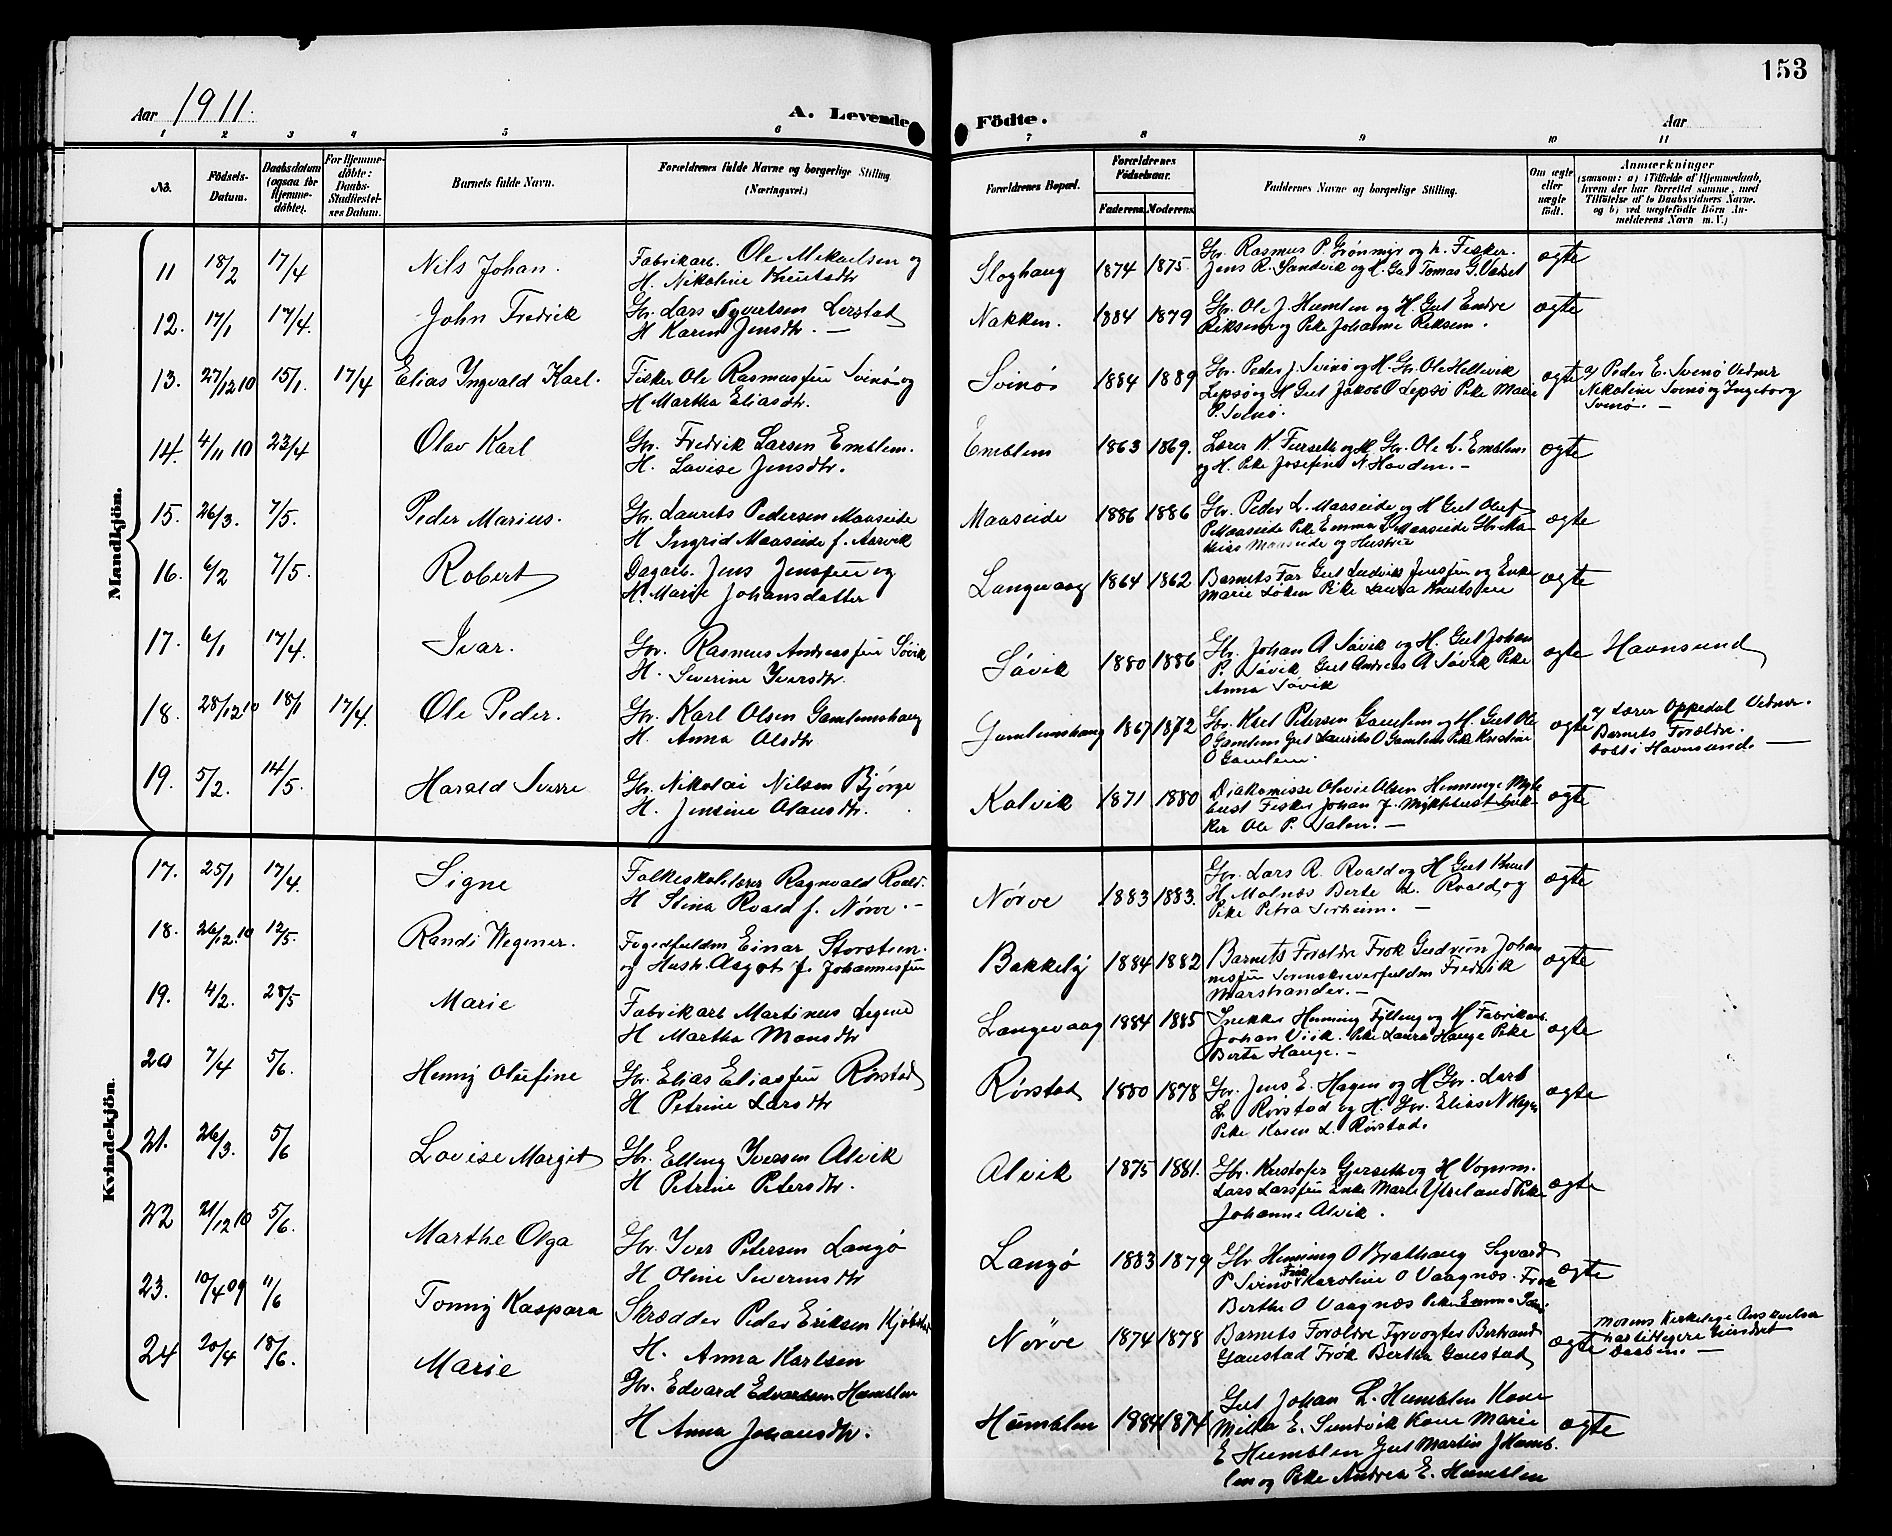 153
Aar 1911.
A. Levende Födte.
Aar
1 2 3 4 5 6 7 8 9 10 11
No.
Födsels-Datum.
Daabsdatum (ogsaa for Hjemme-döbte).
For Hjemme-döbte: Daabs-Stadfæstel-ses Datum.
Barnets fulde Navn.
Forældrenes fulde Navne og borgerlige Stilling (Næringsvei.)
Forældrenes Bopæl.
Forældrenes Födselsaar.
Faderens. Moderens.
Faddernes Navne og borgerlige Stilling.
Om ægte eller uægte födt.
Anmærkninger
(saasom: a) i Tilfælde af Hjemmedaab,
hvem der har forrettet samme, med
Tilföielse af to Daabsvidners Navne.
og b) ved uægtefödte Börn An-
melderens Navn m. V.)
Mandkjön.
11 18/2 17/4 Nils Johan. Fabrikarb. Ole Mikælsen og
H. Nikoline Knutsdtr
Sloghaug 1874 1875. Gbr. Rasmus P. Grönmyr og h. Fisker.
Jens R. Sandvik og H. Gut Tomas G. Valset ægte
12. 17/1 17/4. John Fredrik Gbr. Lars Syvertsen Lerstad
H Karen Jensdtr. —
Nakken. 1884 1879 Gbr. Ole J. Humlen og H. Gut Endre
Riksem og Pike Johanne Riksem. ægte
13. 27/12 10 15/1. 17/4 Elias Ingvald Karl. Fisker Ole Rasmussen Svinö og
H Martha Eliasdtr.
Svinös 1884 1889 Gbr. Peder J. Svinö og H. Gbr. Ole Hellevik
Lepsö og H Gut Jakob O Lepsö Pike Marie
P. Svinö. ægte a) Peder E. Svinö Vidner
Nikoline Svinö og Ingeborg
Svinö. —
14. 4/11 10 23/4 Olav Karl Gbr. Fredrik Larsen Emblem.
H. Lovise Jensdtr.
Emblem 1863 1869. Lærer K. Furseth og H. Gbr. Ole L. Emblem
og H. Pike Josefine N. Hovden. — ægte
15. 26/3. 7/5. Peder Marius. Gbr. Laurits Pedersen Maaseide
H Ingrid Maaseide f. Aarvik
Maaseide 1886 1886 Gbr. Peder L. Maaseide og H Gut Oluf
P Maaseide Pike Emma L Maaseide Gbr Ma-
thias Maaseide og Hustru ægte
16. 6/2 7/5. Robert Dagarb. Jens Jenssen og
H. Marie Johansdatter
Langevaag 1864 1862 Barnets Far Gut Ludvik Jenssen og Enke
Marie Löken Pike Laura Knutssen ægte
17. 6/1 17/4. Ivar. Gbr. Rasmus Andreassen Sövik
H. Severine Iversdtr.
Sövik 1880 1886 Gbr. Johan A Sövik og H. Gut Johan
P. Sövik Gut Andreas A Sövik Pike
Anna Sövik ægte Havnsund
18. 28/12 10 18/1 17/4. Ole Peder. Gbr. Karl Olsen Gamlemshaug
H. Anna Olsdtr
Gamlemshaug 1867 1872 Gbr. Karl Petersen Gamlem og H. Gut Ole
O Gamlem Gut Laurits O Gamlem Pike Kristine
O Gamlem. ægte a) Lærer Oppedal Vidner.
Barnets Forældre.
döbt i Havnsund. —
19. 5/2. 14/5. Harald Sverre Gbr. Nikolai Nilsen Bjørge
H. Jensine Olausdtr.
Kalvik 1871 1880 Diakonisse Olivie Olsen Henninge Mykle-
bust Fisker Johan J. Myklebust Snik-
ker Ole P. Valen. — ægte
Kvindekjön.
17. 25/1 17/4. Signe Folkeskolelærer Ragnvald Roald.
H Stina Roald f. Nörve. —
Nörve 1883 1883. Gbr. Lars R. Roald og H Gut Knut
H Molnæs Berte L. Roald og
Pike Petra Serheim. — ægte
18. 26/12. 10 12/5. Randi Wegener. Fogedfuldm Einar Storsteen
og Hustr. Aagot f. Johannessen
Bakkeby 1884 1882 Barnets Forældre Frøk Gudrun Johan
nessen Sorenskriverfuldm Fredrik
Marstrander. — ægte
19. 4/2. 28/5 Marie Fabrikarb Martinus Legene
H Martha Monsdtr
Langevaag 1884 1885 Snekker Henning Fylling og H Fabrikarb.
Johan Viik. Pike Laura Hauge Pike
Berta Hauge. — ægte
20 7/4 5/6. Henny Olufine Gbr. Elias Eliassen Rörstad
H Petrine Larsdtr
Rörstad 1880 1878 Gbr. Jens E. Hagen og H Gbr. Lars
L. Rörstad og H. Gbr. Elias N Hagen
Pike Karen L. Rörstad. ægte
21. 26/3. 5/6 Lovise Margit Gbr. Elling Iversen Alvik
H Petrine Petersdtr.
Alvik 1875 1881. Gbr. Kristofer Gjerseth og H Vognm.
Lars Larssen Enke Marte Ytreland Pike
Johanne Alvik. ægte
22 21/12 10 5/6. Marthe Olga Gbr. Iver Petersen Langö
H Oline Severinsdtr
Langö 1883 1879 Gbr Henning O Brathaug Sigvard
P Svinö Frøk Karoline O Vaagnæs. Frøk
Berthe O Vaagnæs Pike Emma ægte
23. 10/4 09 11/6 Tonny Kaspara Skrædder Peder Eriksen
H. Anna Karlsen
Nörve 1874 1878 Barnets Forældre Fyrvogter Bertrand
Gaustad Frök Bertha Gaustad ægte Morens Kirkelige Anskuelser
har tidligere hindret
Daaben. —
24 20/4 18/6. Marie Gbr. Edvard Edvardsen Humblen
H Anna Johansdtr.
Humblen 1884 1874 Gut Johan L. Humblen Kone
Milla E. Sundvik Kone Marie
E Humblen Gut Martin J Humb-
len og Pike Andrea E. Humblen ægte